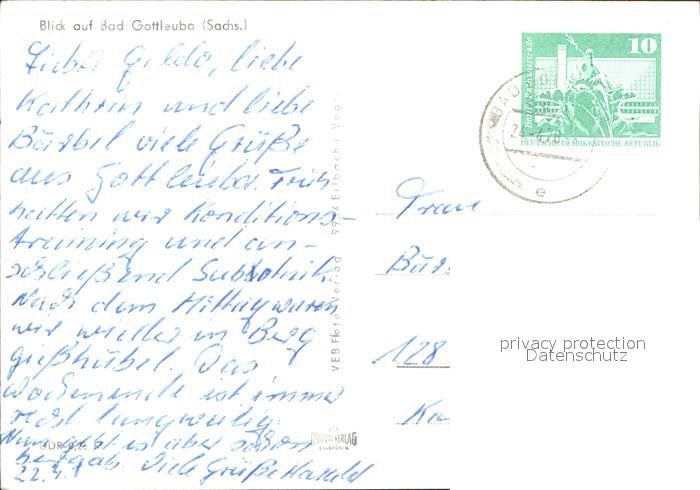 Blick auf Bad Gottleuba (Sachs.)
Liebe Gilda, liebe
Kathrin und liebe
Bärbel viele Grüße
aus Gottleuba. Früh
hatten wir Konditions-
training und an-
schließend Subbotnik.
Nach dem Mittag waren
wir wieder in Berg
gießhübel. Das
Wochenende ist immer
recht langweilig.
Nun geht es aber schon
bergab. Viele Grüße Harald
22.4.
VEB Foto-Verlag
10
DEUTSCHE DEMOKRATISCHE REPUBLIK
BAD
24.-4.78
e
Frau
Bär
128
privacy protection
Datenschutz